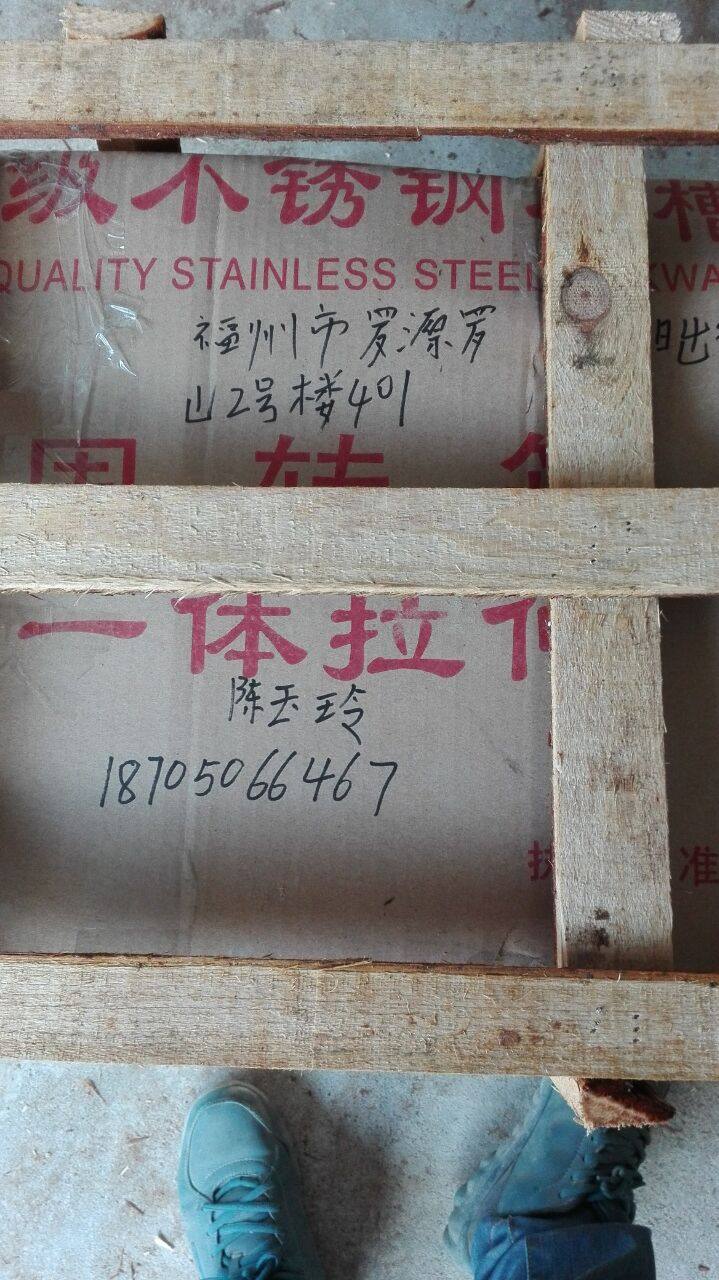 级不锈钢 槽
QUALITY STAINLESS STEEL KWA
福州市罗源罗
山2号楼401
一体拉伸
陈玉玲
18705066467
执 准